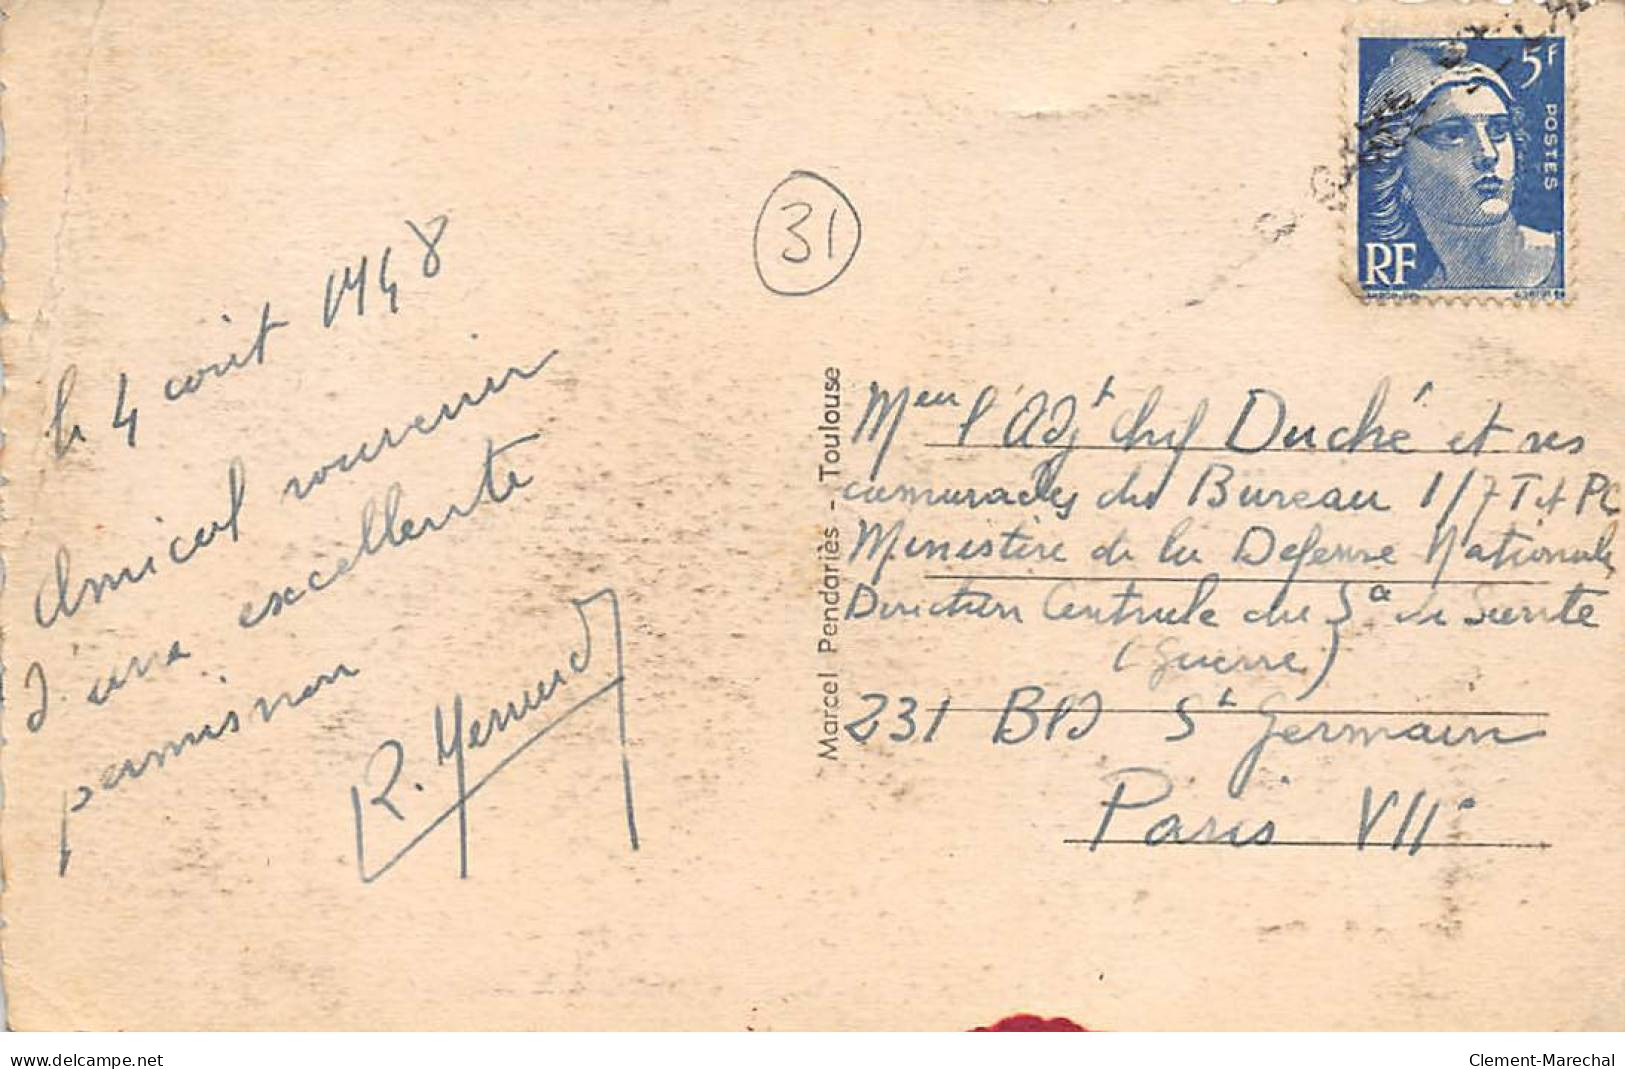 le 4 août 1948
Amical souvenir
d'une excellente
permission
R.
31
Marcel Pendariès - Toulouse
5F
POSTES
RF
Meur l'Adjt chef Duché et ses
camarades du Bureau 1/7 T et PC
Ministère de la Défense Nationale
Direction Centrale du Sce de Santé
(Guerre)
231 BD St Germain
Paris VIIe
www.delcampe.net
Clement-Marechal